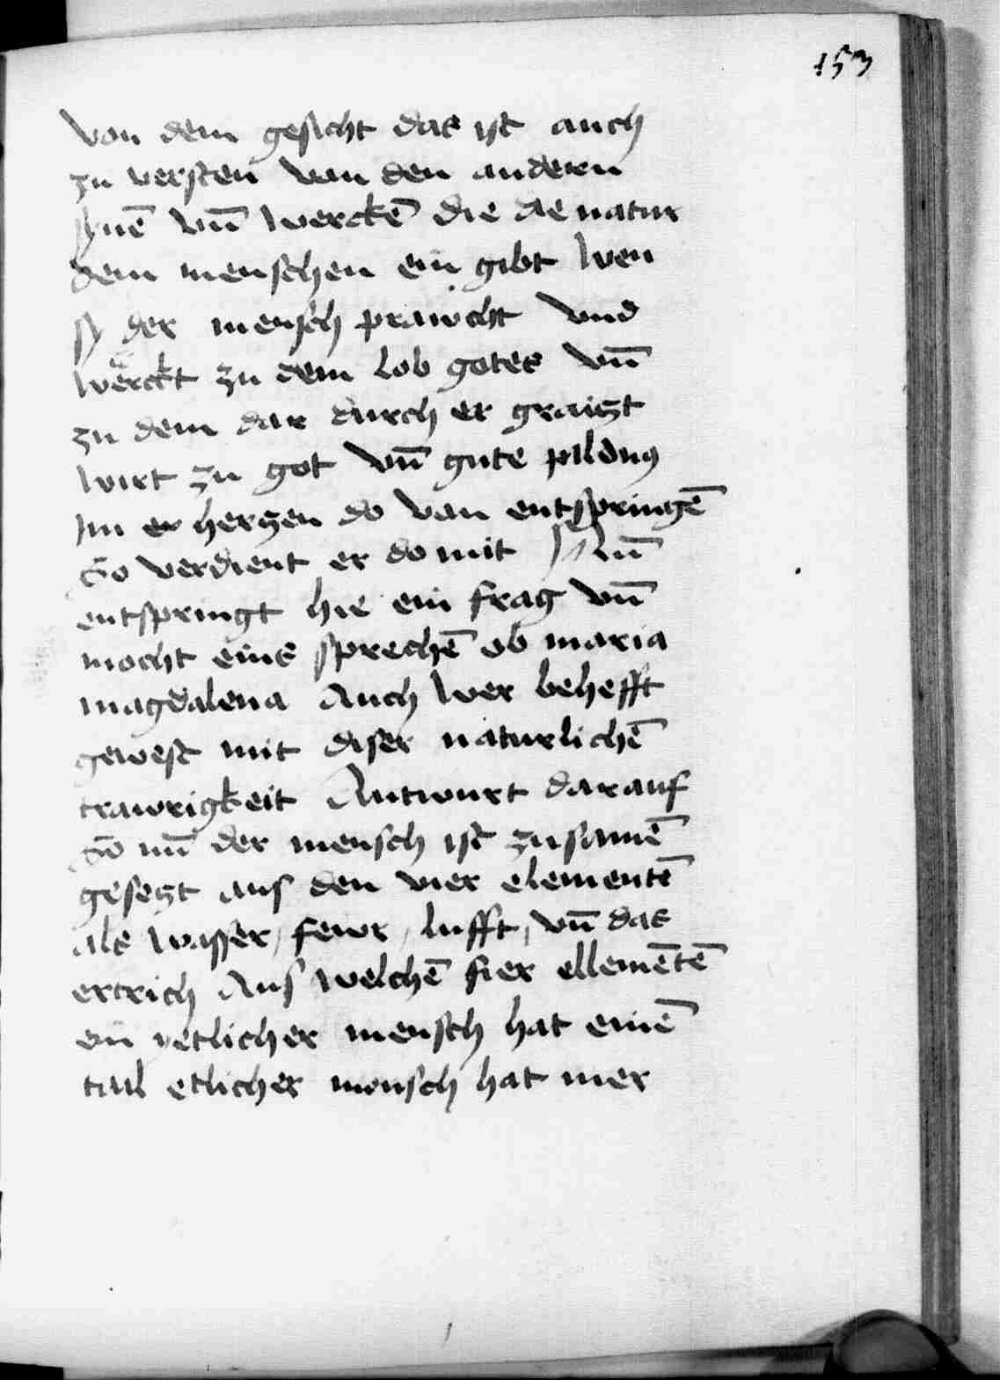 153
von dem gesicht das ist auch
zu versten von den andern
synē vnd̄ werckē die die natur
dem menschen ein gibt wen
sy der mensch prawcht vnd
werckt zu dem lob gotes vn̄
zu dem dar durch er graitzt
wirt zu got vn̄ gute pildung
Im er hertzen do von entspringē
So verdient er do mit vn̄
entspringt hie ein frag vn̄
mocht eins sprechē ob maria
magdalena Auch wer behefft
gewest mit diser naturlichē
trawrigkeit Antwurt darauf
So nū der mensch ist zusamē
gesetzt aus den vier elementē
als wasser, fewr, lufft, vn̄ das
ertrich Aus welchē fier ellemētē
ein yetlicher mensch hat einē
tail etlicher mensch hat mer